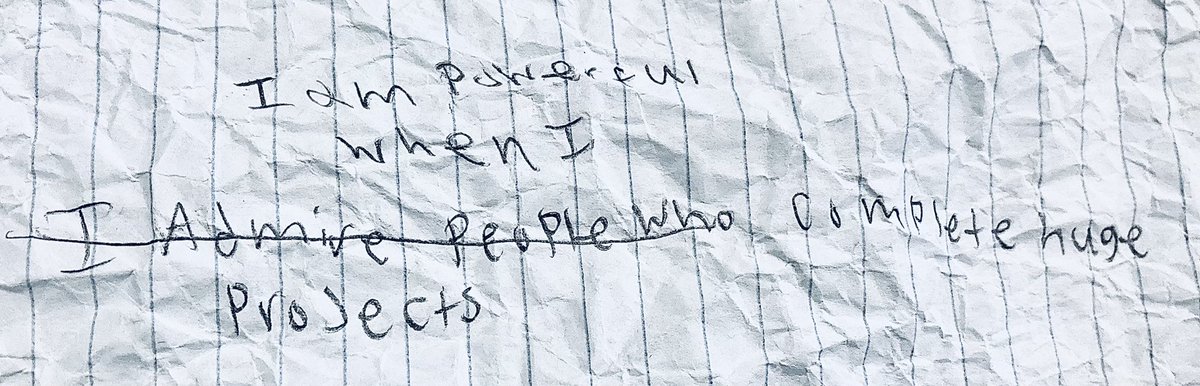 I am powerful
when I
I Admire People who complete huge
Projects